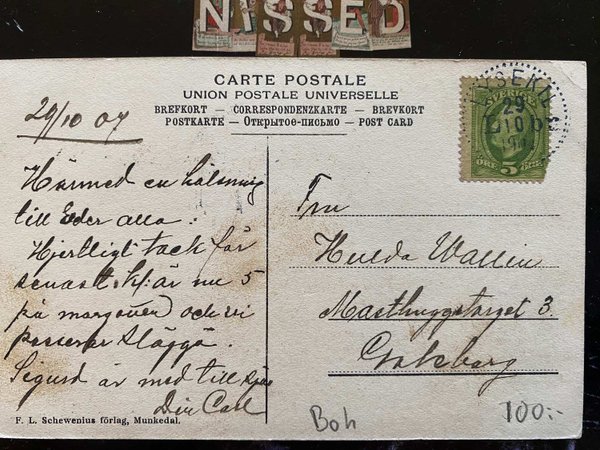 NISSED
CARTE POSTALE
UNION POSTALE UNIVERSELLE
BREFKORT — CORRESPONDENZKARTE — BREVKORT
POSTKARTE — Открытое-письмо — POST CARD
29/10 07
LYSEKIL
29
10
SVERIGE
ÖRE 5
Härmed en hälsning
till Eder alla.
Hjertligt tack för
senast. Kl: är nu 5
på margonen och vi
passerar Släggö.
Sigurd är med till sjös
Din Carl
Fru
Hulda Wallin
Masthuggstorget 3.
Göteborg
F. L. Schewenius förlag, Munkedal.
Boh
100:-